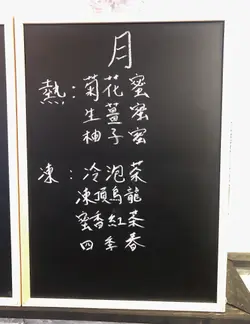 月
熱：菊花蜜
生薑蜜
柚子蜜
凍：冷泡茶
凍頂烏龍
蜜香紅茶
四季春